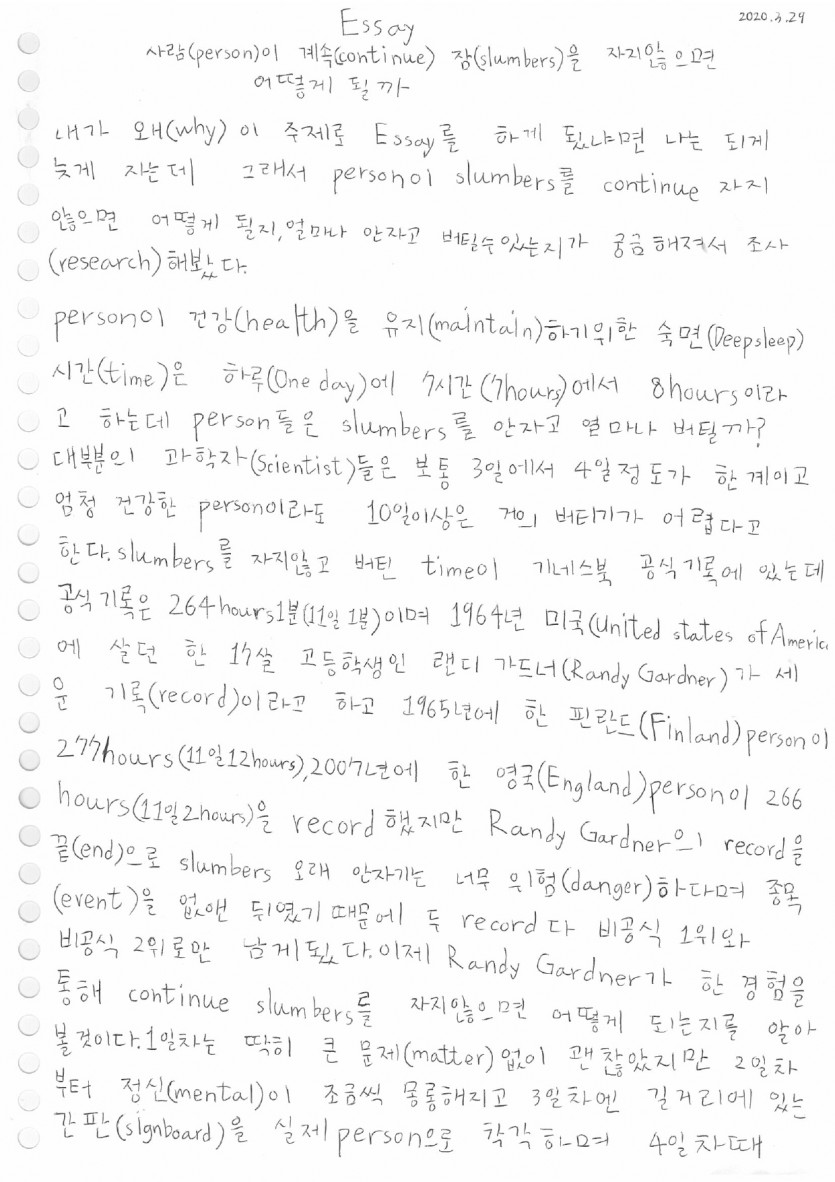 Essay
2020.3.29
사람(person)이 계속(continue) 잠(slumbers)을 자지않으면
어떻게 될까
내가 왜(why) 이 주제로 Essay를 하게 됬냐면 나는 되게
늦게 자는데 그래서 person이 slumbers를 continue 자지
않으면 어떻게 될지,얼마나 안자고 버틸수있는지가 궁금해져서 조사
(research)해봤다.
person이 건강(health)을 유지(maintain)하기위한 숙면(Deepsleep)
시간(time)은 하루(One day)에 7시간(7hours)에서 8hours이라
고 하는데 person들은 slumbers를 안자고 얼마나 버틸까?
대부분의 과학자(Scientist)들은 보통 3일에서 4일정도가 한계이고
엄청 건강한 person이라도 10일이상은 거의 버티기가 어렵다고
한다.slumbers를 자지않고 버틴 time이 기네스북 공식기록에 있는데
공식기록은 264hours1분(11일 1분)이며 1964년 미국(United states of America
에 살던 한 17살 고등학생인 랜디 가드너(Randy Gardner)가 세
운 기록(record)이라고 하고 1965년에 한 핀란드(Finland)person이
277hours(11일12hours),2007년에 한 영국(England)person이 266
hours(11일2hours)을 record했지만 Randy Gardner의 record을
끝(end)으로 slumbers 오래 안자기는 너무 위험(danger)하다며 종목
(event)을 없앤 뒤였기 때문에 두 record다 비공식 1위와
비공식 2위로만 남게됬다.이제 Randy Gardner가 한 경험을
통해 continue slumbers를 자지않으면 어떻게 되는지를 알아
볼것이다.1일차는 딱히 큰 문제(matter)없이 괜찮았지만 2일차
부터 정신(mental)이 조금씩 몽롱해지고 3일차엔 길거리에 있는
간판(signboard)을 실제person으로 착각하며 4일차때